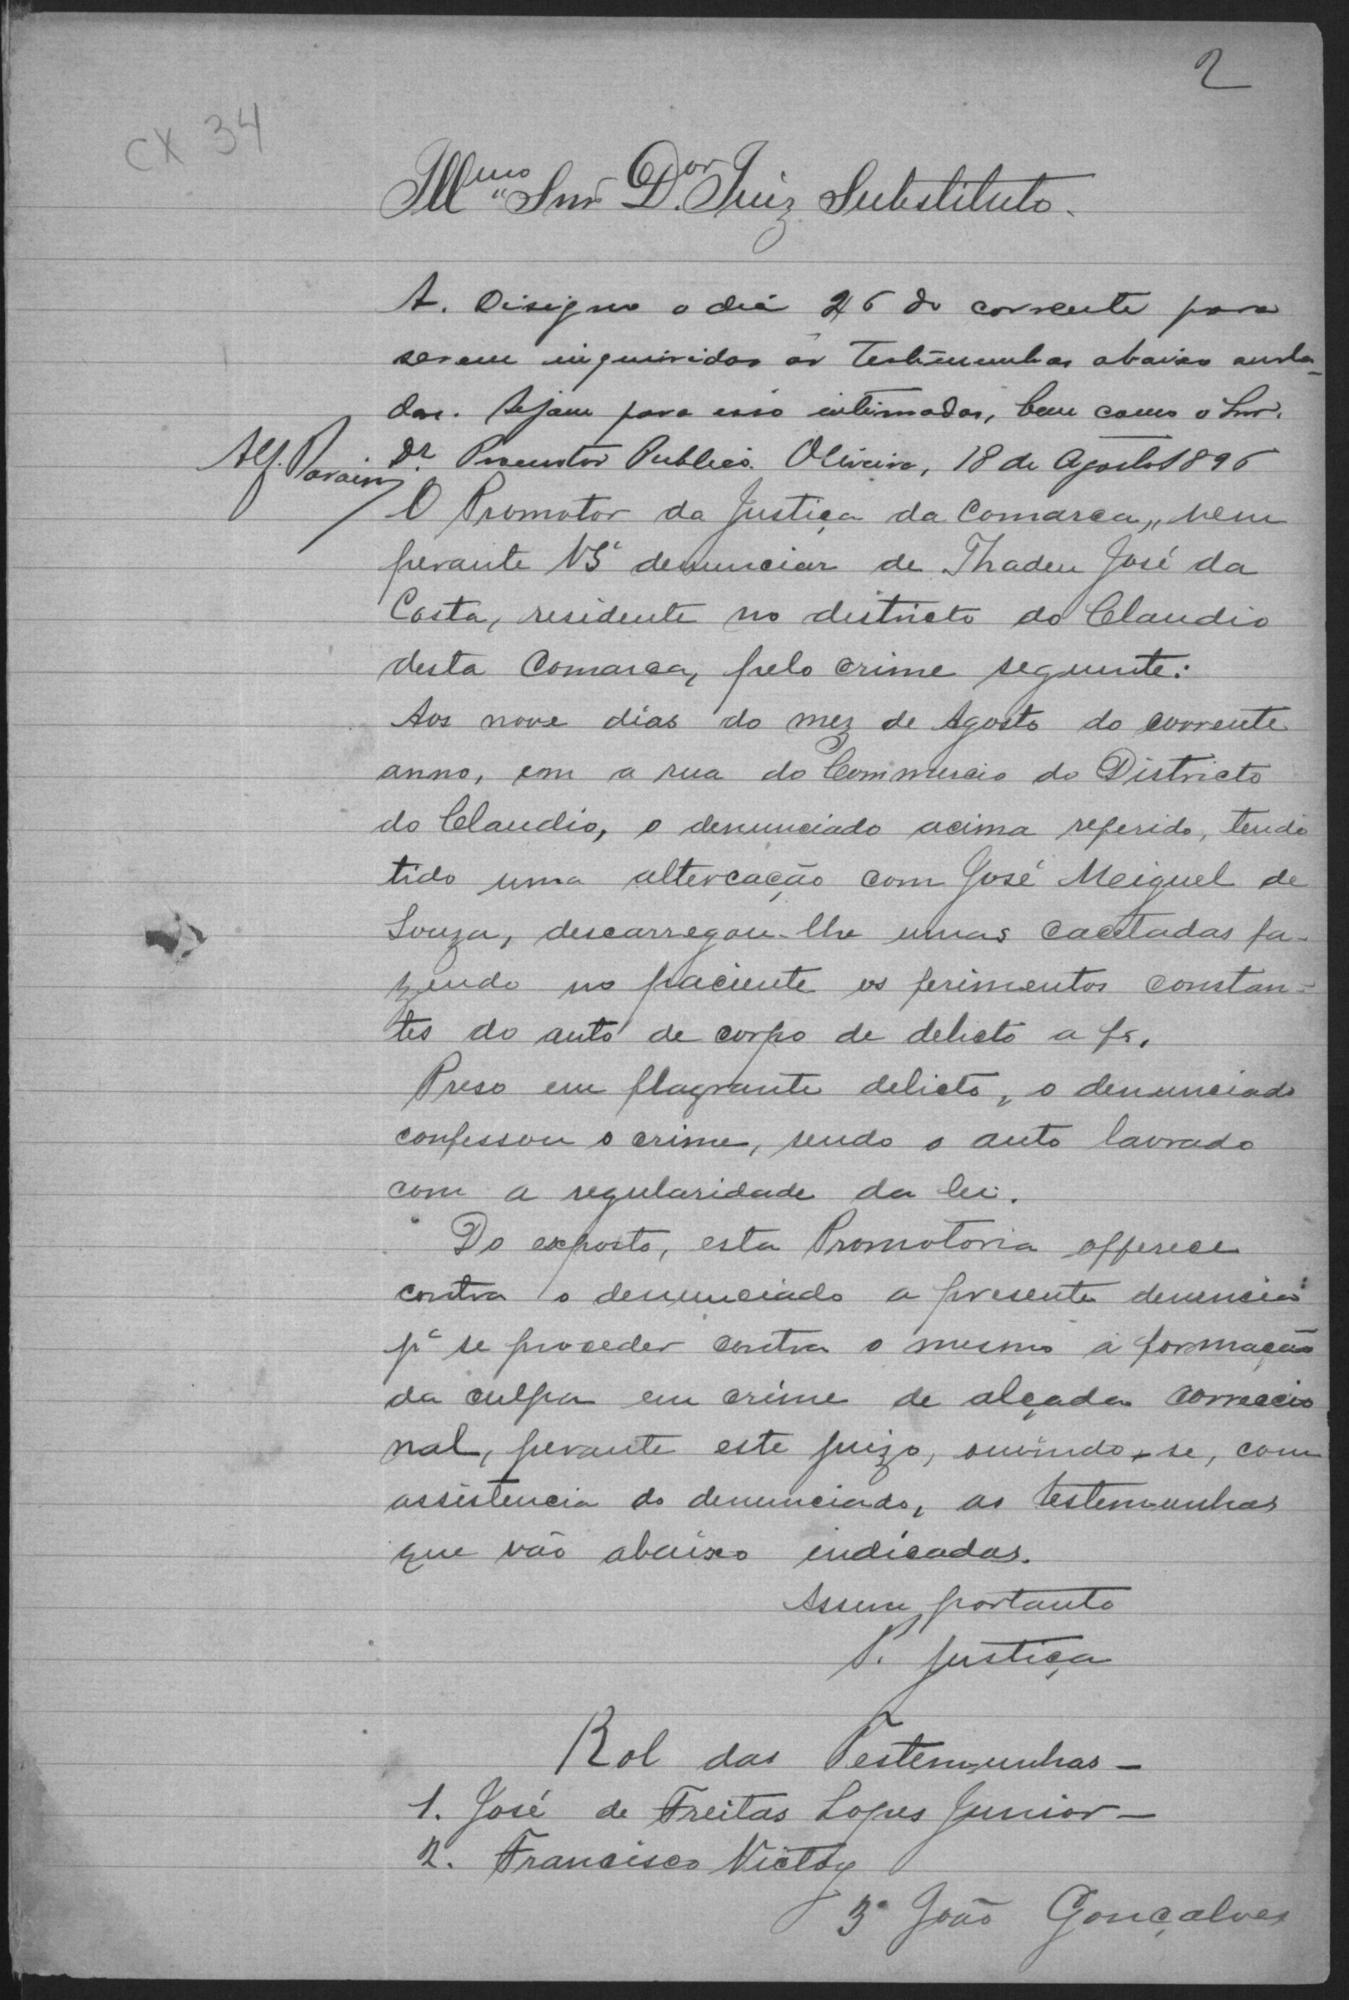 2
CX 34
Illmo Snr Dor Juiz Substituto.
A. Designo o dia 26 do corrente para
serem inqueridas as testemunhas abaixo arrola-
das. Sejam para isso intimadas, bem como o Snr.
Dr. Promotor Publico. Oliveira, 18 de Agosto 1896
O Promotor da Justiça da Comarca, vem
perante VSª denunciar de Thadeu José da
Costa, residente no districto do Claudio
desta Comarca, pelo crime seguinte:
Aos nove dias do mez de Agosto do corrente
anno, em a rua do Commercio do Districto
do Claudio, o denunciado acima referido, tendo
tido uma altercação com José Meiguel de
Souza, descarregou-lhe umas cacetadas fa-
zendo no paciente os ferimentos constan-
tes do auto de corpo de delicto a fs.
Preso em flagrante delicto, o denunciado
confessou o crime, sendo o auto lavrado
com a regularidade da lei.
Do exposto, esta Promotoria offerece
contra o denunciado a presente denuncia
pª se proceder contra o mesmo a formação
da culpa em crime de alçada correccio
nal, perante este juizo, ouvindo-se, com
assistencia do denunciado, as testemunhas
que vão abaixo indicadas.
Assim, portanto
P. justiça
Rol das Testemunhas —
1. José de Freitas Lopes Junior —
2. Francisco Victoy
3º João Gonçalves